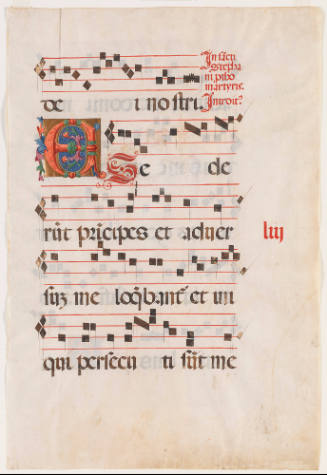 In scti
Stepha
ni ptho
martyris.
Introit
de i nostri.
Se de
rūt principes et aduer liij
suz me loq̄bant᷑ et ini
qui persecu ti sūt me